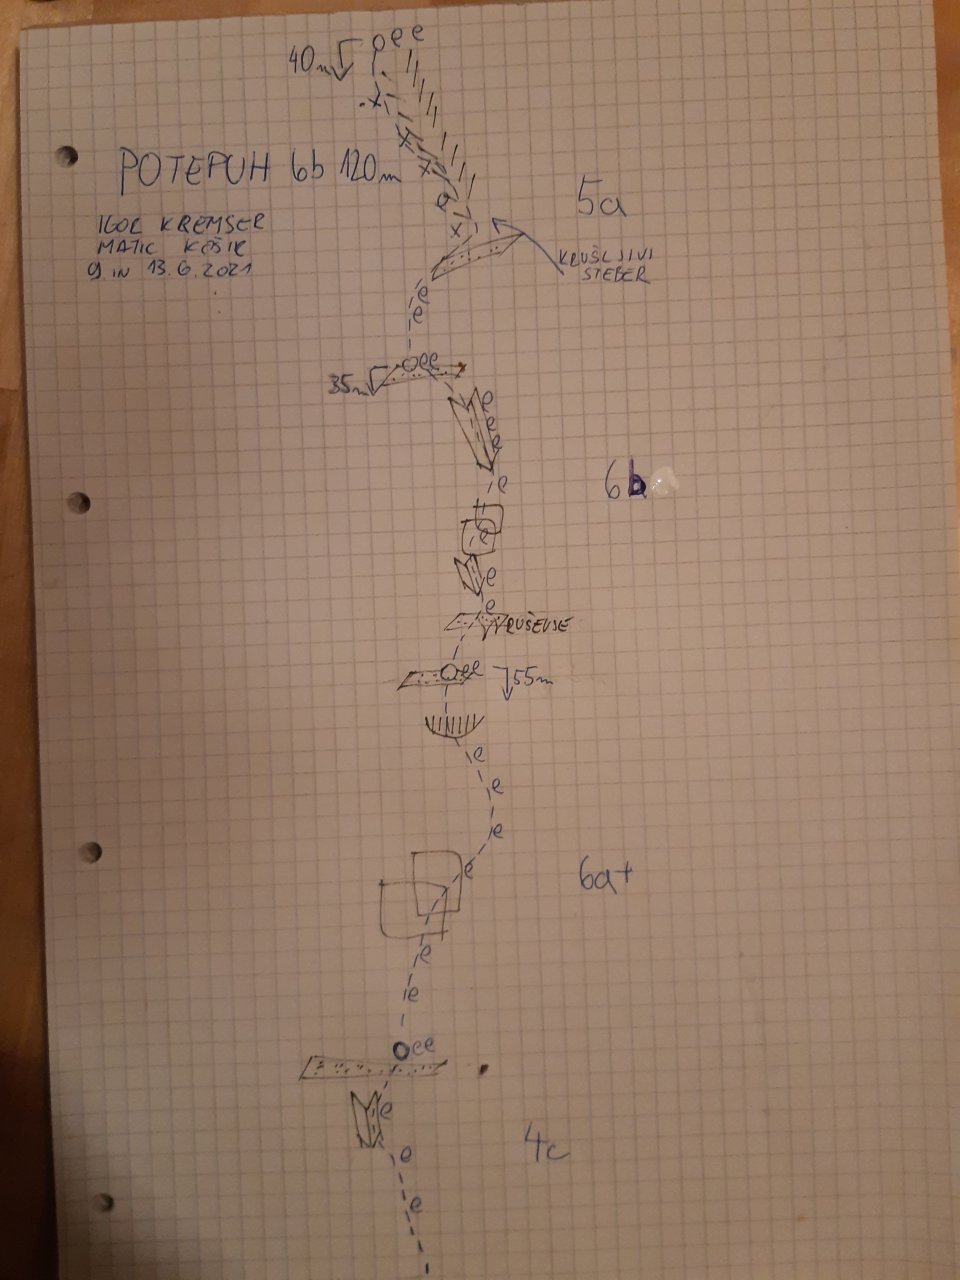 40m
o e e
x
x
POTEPUH 6b 120m
x
5a
IGOR KREMŠER
MATIC KOŠIR
9. IN 13.6.2021
x
KRUŠLJIVI
STEBER
e
e
oee
35m
e
e
e
e
6b
e
e
e
RUŠEVJE
oee
55m
e
e
e
e
6a+
e
e
oee
e
4c
e
e